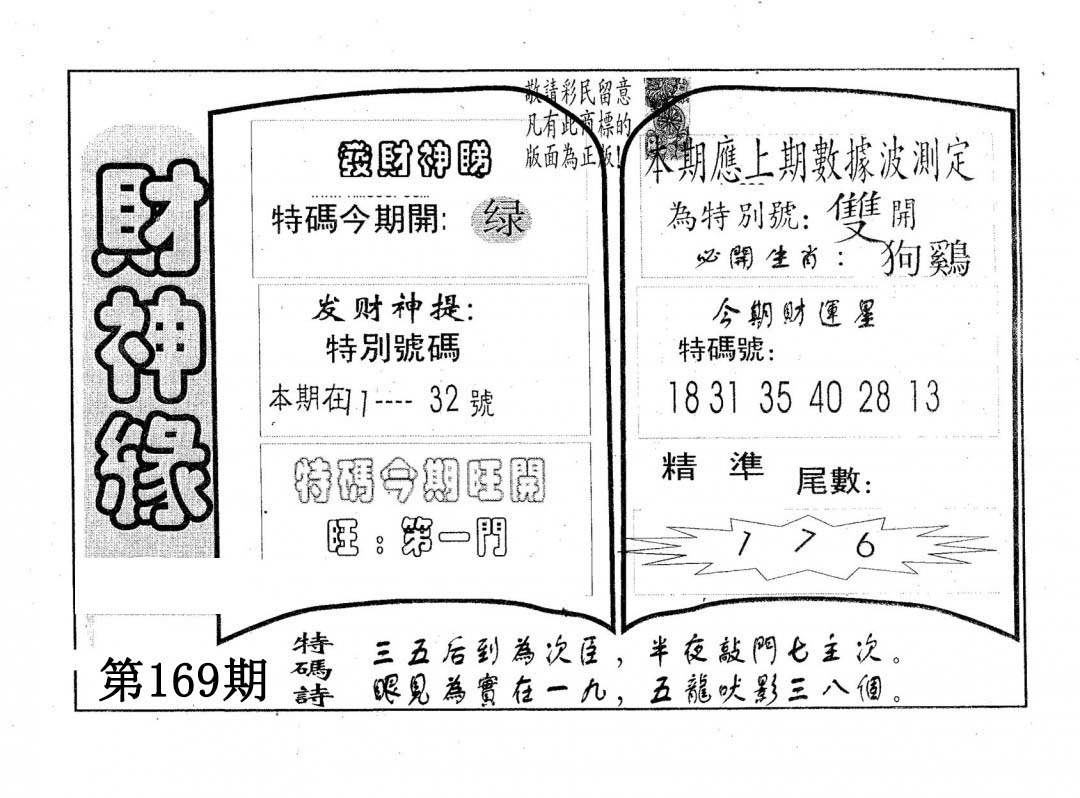 財神緣
第169期
發財神睇
特碼今期開: 绿
发财神提:
特別號碼
本期在11----32號
特碼今期旺開
旺:第一門
敬請彩民留意
凡有此商標的
版面為正版!
本期應上期數據波測定
為特別號:雙開
必開生肖:狗鷄
今期財運星
特碼號:
18 31 35 40 28 13
精準 尾數:
1 7 6
特碼詩
三五后到為次臣,半夜敲門七主次。
眼見為實在一九,五龍吠影三八個。